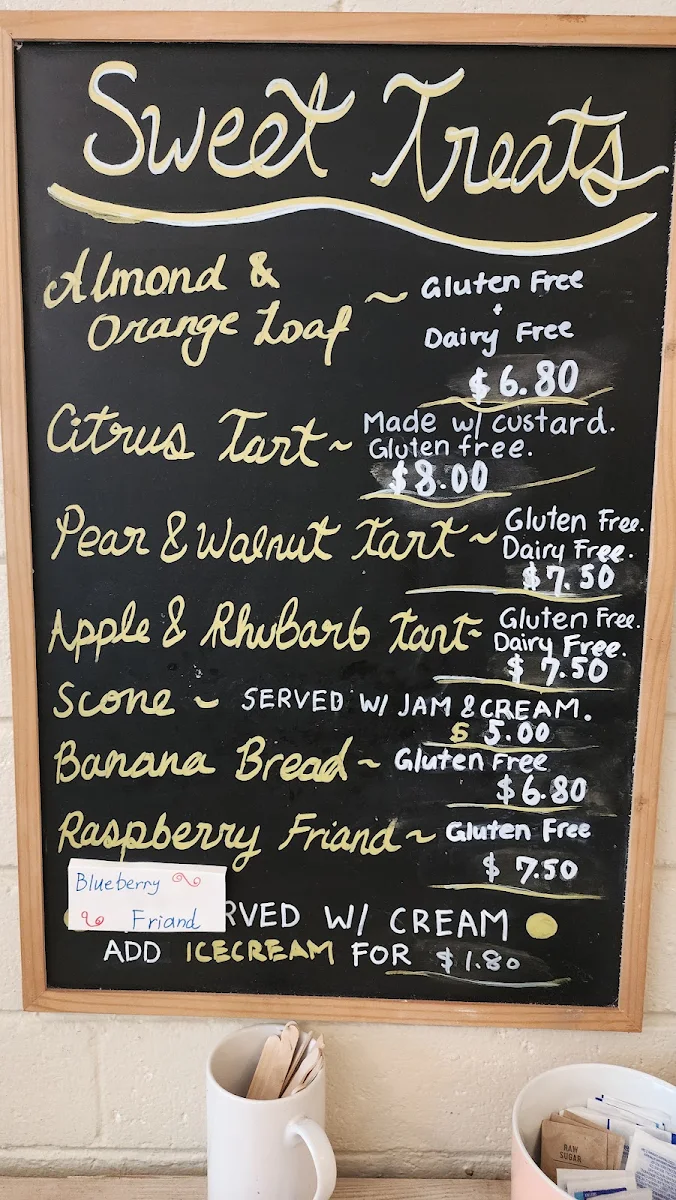 Sweet Treats
Almond &
Orange Loaf ~ Gluten Free
+
Dairy Free
$6.80
Citrus Tart ~ Made w/ custard.
Gluten free.
$8.00
Pear & Walnut tart ~ Gluten Free.
Dairy Free.
$7.50
Apple & Rhubarb tart ~ Gluten Free.
Dairy Free.
$7.50
Scone ~ SERVED W/ JAM & CREAM.
$5.00
Banana Bread ~ Gluten Free
$6.80
Raspberry Friand ~ Gluten Free
$7.50
Blueberry
Friand
RVED W/ CREAM
ADD ICECREAM FOR $1.80
RAW
SUGAR